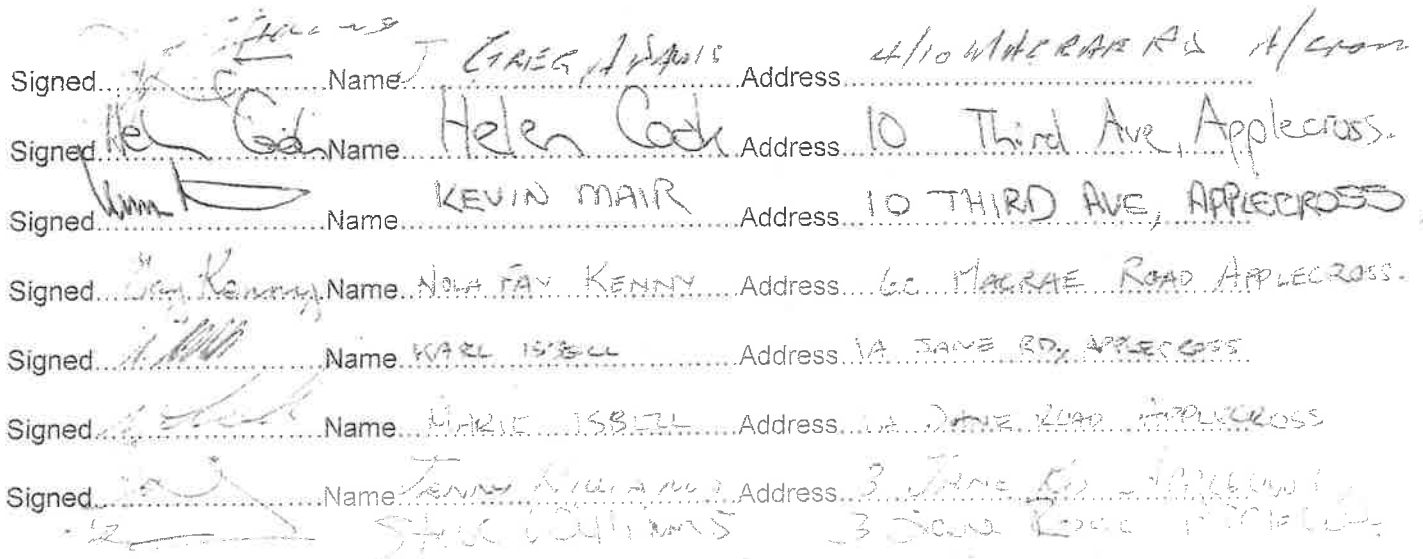 Signed Name J GREG ADAMS Address 4/10 MACRAE RD A/Cross
Signed Helen Cook Name Helen Cook Address 10 Third Ave, Applecross.
Signed Name KEVIN MAIR Address 10 THIRD AVE, APPLECROSS
Signed Fay Kenny Name NOLA FAY KENNY Address 6C MACRAE ROAD APPLECROSS.
Signed Name KARL ISBELL Address 1A JANE RD, APPLECROSS
Signed Name MARIE ISBELL Address 1A JANE ROAD APPLECROSS
Signed Name JENNY WILLIAMS Address 3 JANE RD
Williams 3 Jane Road